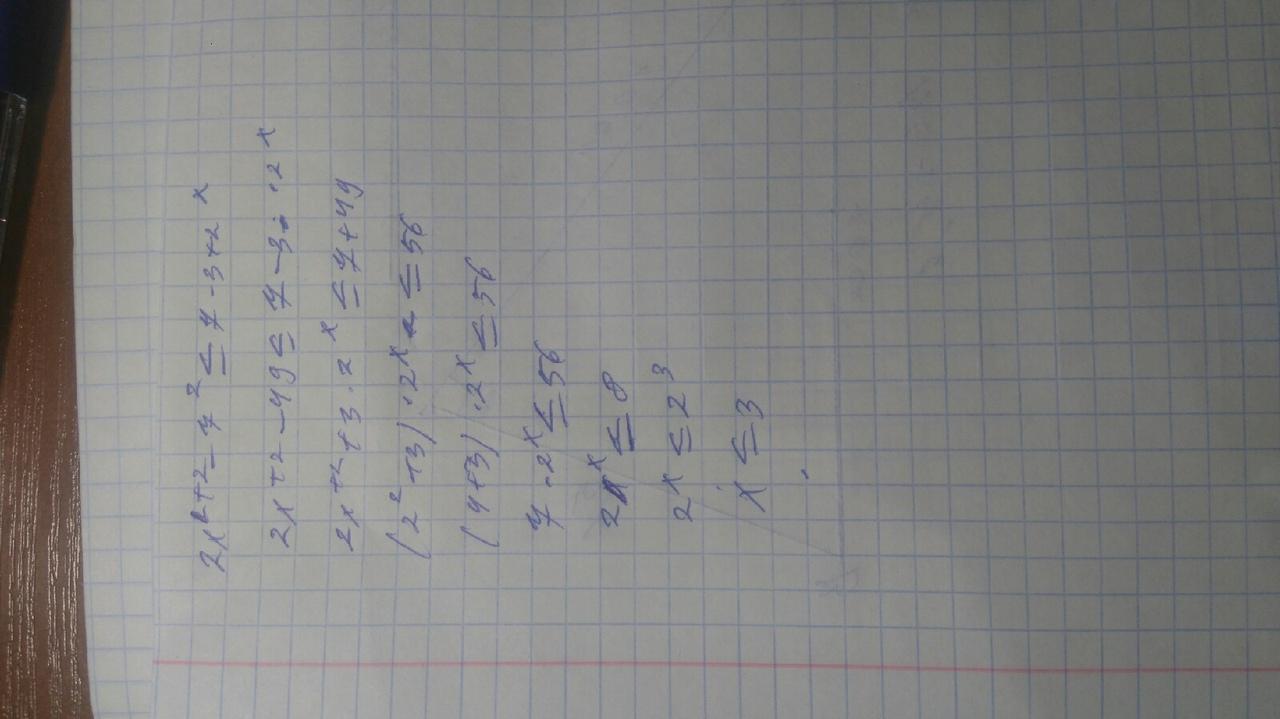 2x²+2-7² ≤ 7-3+2^x
2x+2-49 ≤ 7-3·2^x
2x+²+3·2^x ≤ 7+49
(2²+3)·2^x ≤ 56
(4+3)·2^x ≤ 56
7·2^x ≤ 56
2^x ≤ 8
2^x ≤ 2³
x ≤ 3